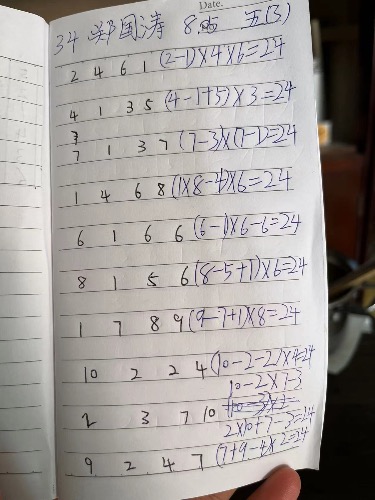 Date.
34 郑国涛 8.25 五(3)
2 4 6 1 (2-1)×4×6=24
4 1 3 5 (4-1+5)×3=24
7 1 3 7 (7-3)×(7-1)=24
1 4 6 8 (1×8-4)×6=24
6 1 6 6 (6-1)×6-6=24
8 1 5 6 (8-5+1)×6=24
1 7 8 9 (9-7+1)×8=24
10 2 2 4 (10-2-2)×4=24
10-2×7-3
2 3 7 10
2×10+7-3=24
9 2 4 7 (7+9-4)×2=24